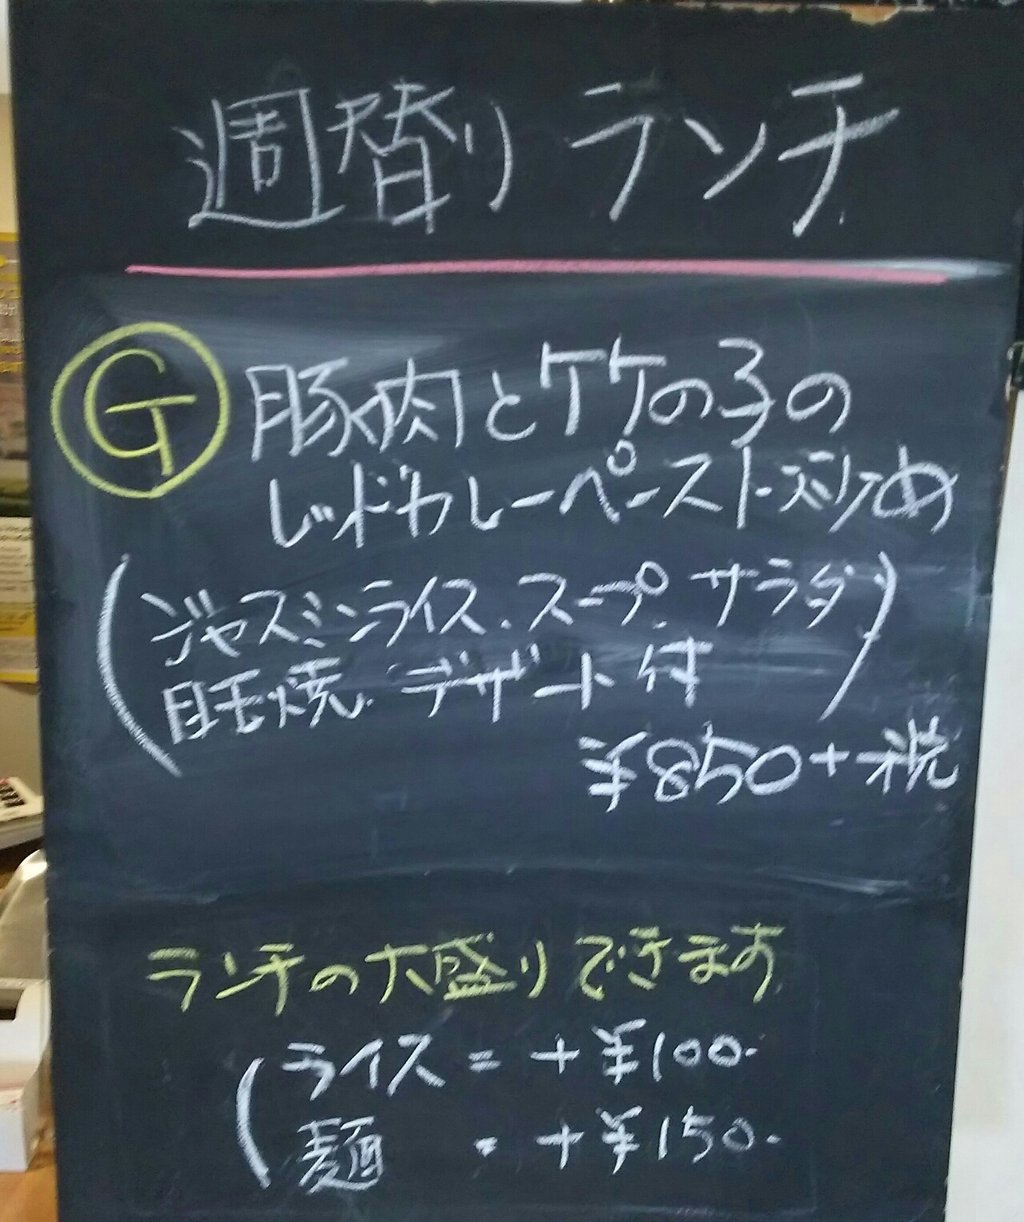 週替りランチ
G 豚肉と竹の子の
レッドカレーペースト炒め
(ジャスミンライス、スープ、サラダ)
目玉焼、デザート付
¥850+税
ランチの大盛りできます
(ライス = +¥100-
麺 = +¥150-